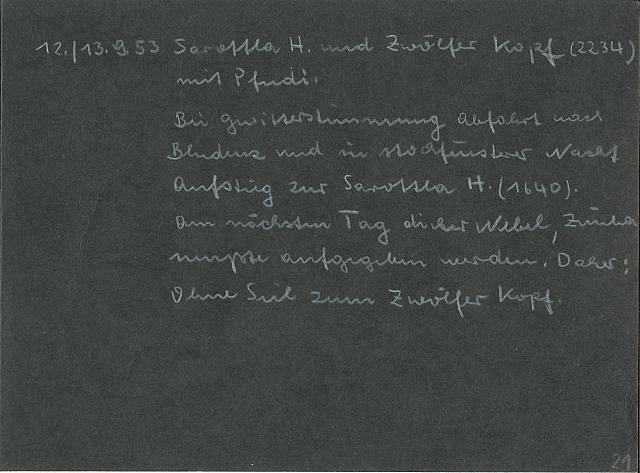 12./13.9.53 Sarottla H. und Zwölfer Kopf (2234)
mit Pfudi.
Bei Gwitterstimmung Abfahrt nach
Bludenz und in stockfinstrer Nacht
Aufstieg zur Sarottla H. (1640).
Am nächsten Tag dicker Nebel, Zimba
musste aufgegeben werden. Daher:
Ohne Seil zum Zwölfer Kopf.
21